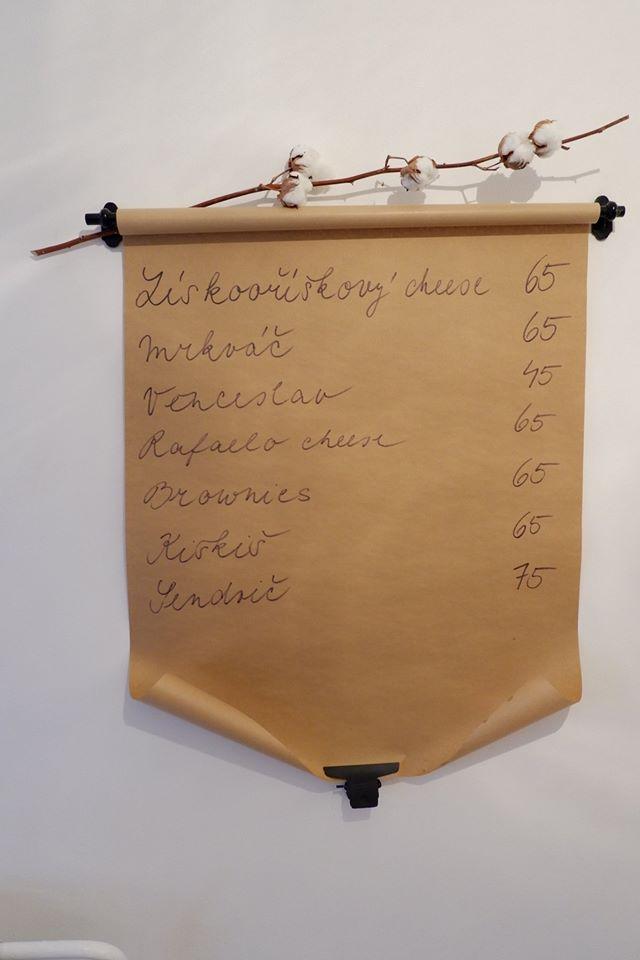 Lískooříškový cheese 65
Mrkváč 65
Venceslav 45
Rafaello cheese 65
Brownies 65
Kiškiš 65
Sendvič 75